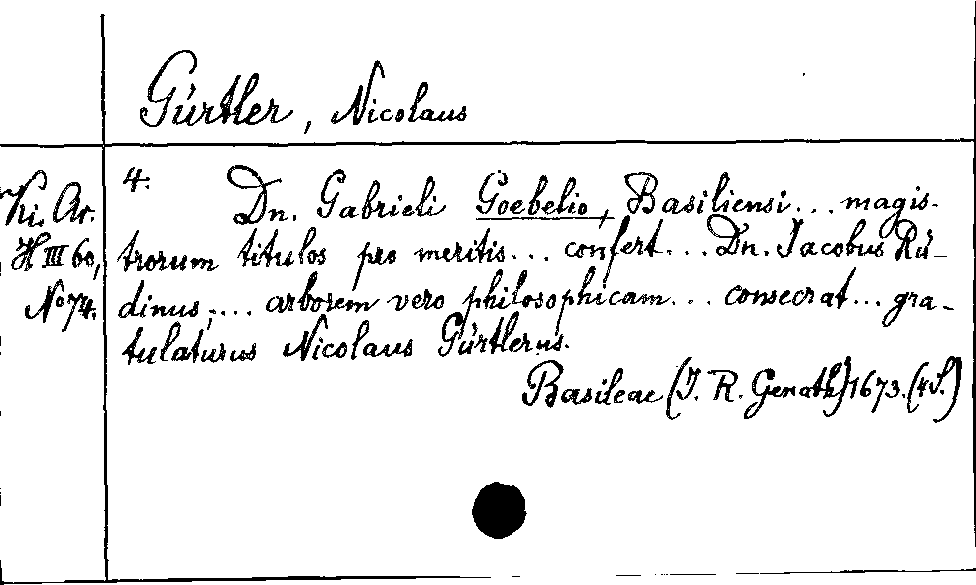 Gürtler, Nicolaus
Ki. Ar.
H III 60,
No 74.
4. Dn. Gabrieli Goebelio, Basiliensi... magis-
trorum titulos pro meritis... confert... Dn. Jacobus Rü-
dinus,... arborem vero philosophicam... consecrat... gra-
tulaturus Nicolaus Gürtlerus.
Basileae (J. R. Genath) 1673. (4 S.)